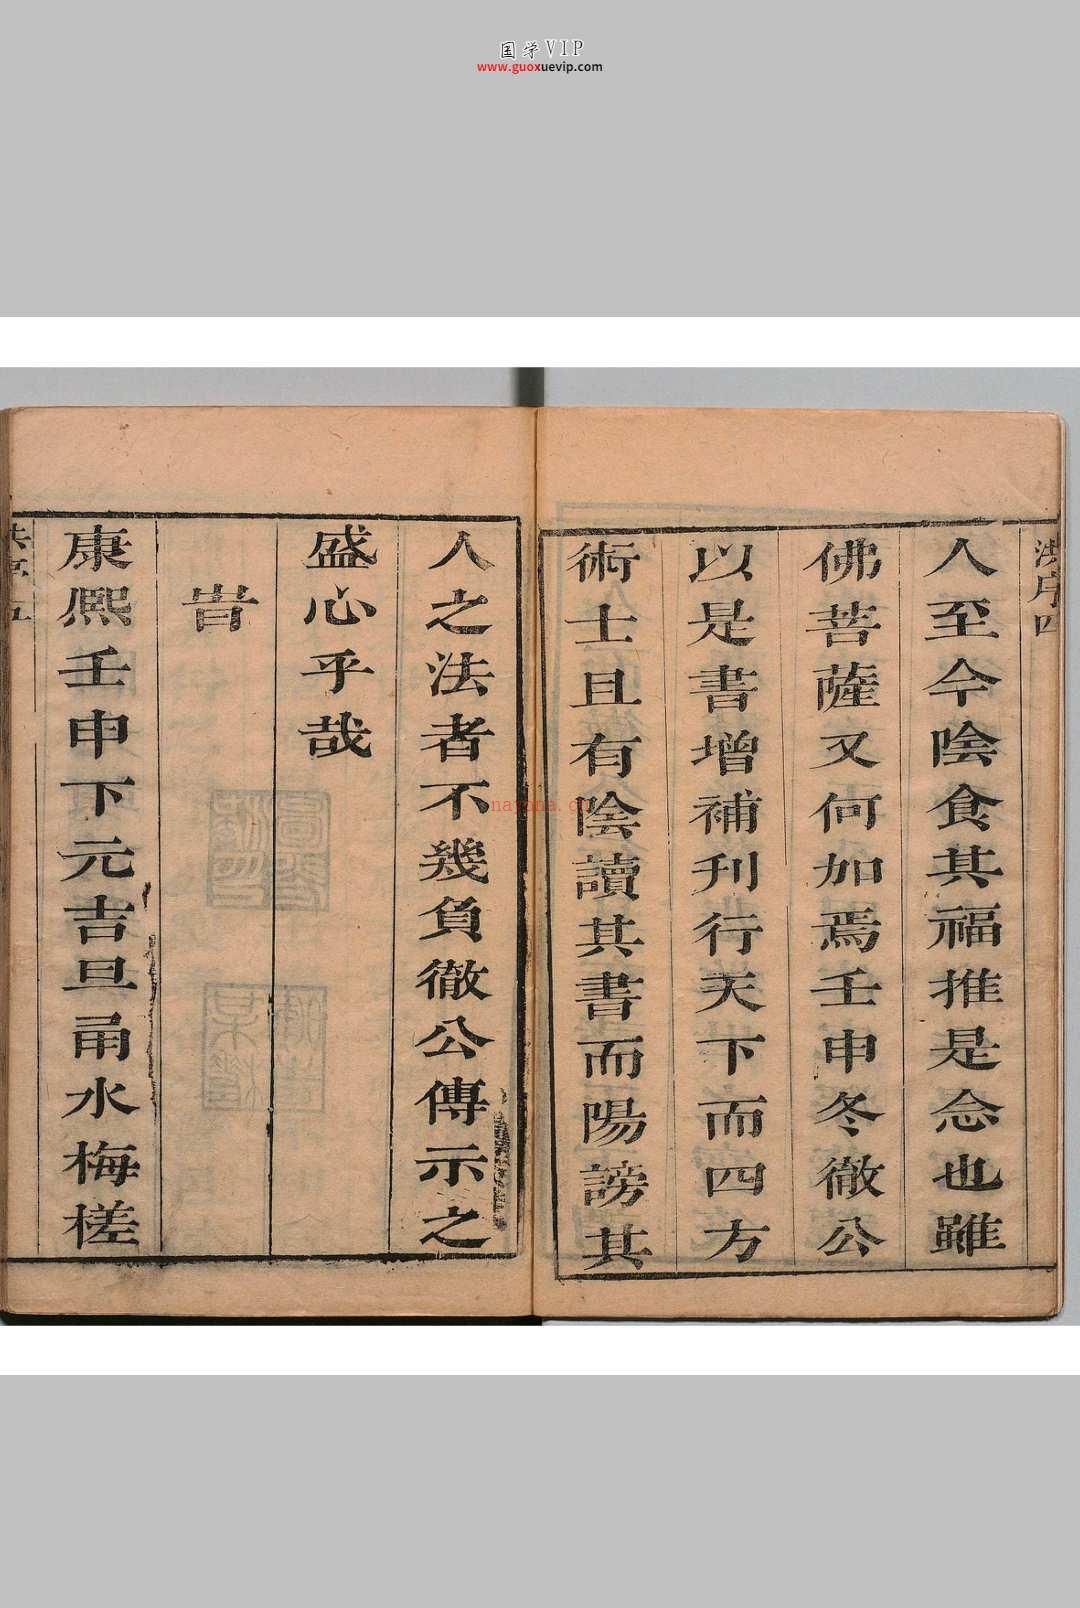 国学VIP
www.guoxuevip.com
洪序四
人至今陰食其福推是念也雖
佛菩薩又何加焉壬申冬徹公
以是書增補刋行天下而四方
術士且有陰讀其書而陽謗其
人之法者不幾負徹公傳示之
盛心乎哉
旹
康熙壬申下元吉旦甬水梅槎
nayona.cn